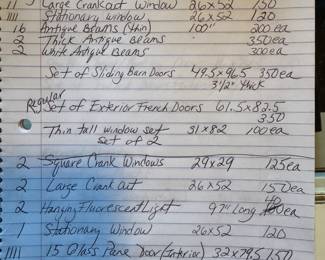 11 Large Crankout Window 26x52 150
1111 Stationary window 26x52 120
16 Antique Beams (thin) 100" 200ea
1 Thick Antique Beams 350ea
2 White Antique Beams 300ea
Set of Sliding Barn Doors 49.5x96.5 350ea
3 1/2" thick
Regular
Set of Exterior French Doors 61.5x82.5
350
Thin tall window set 31x82 100ea
set of 2
2 Square Crank Windows 29x29 125ea
2 Large Crank out 26x52 150ea
2 Hanging Fluorescent Light 97" Long 40ea
1 Stationary Window 26x52 120
1111 15 Glass Pane Door (Interior) 32x79.5 150